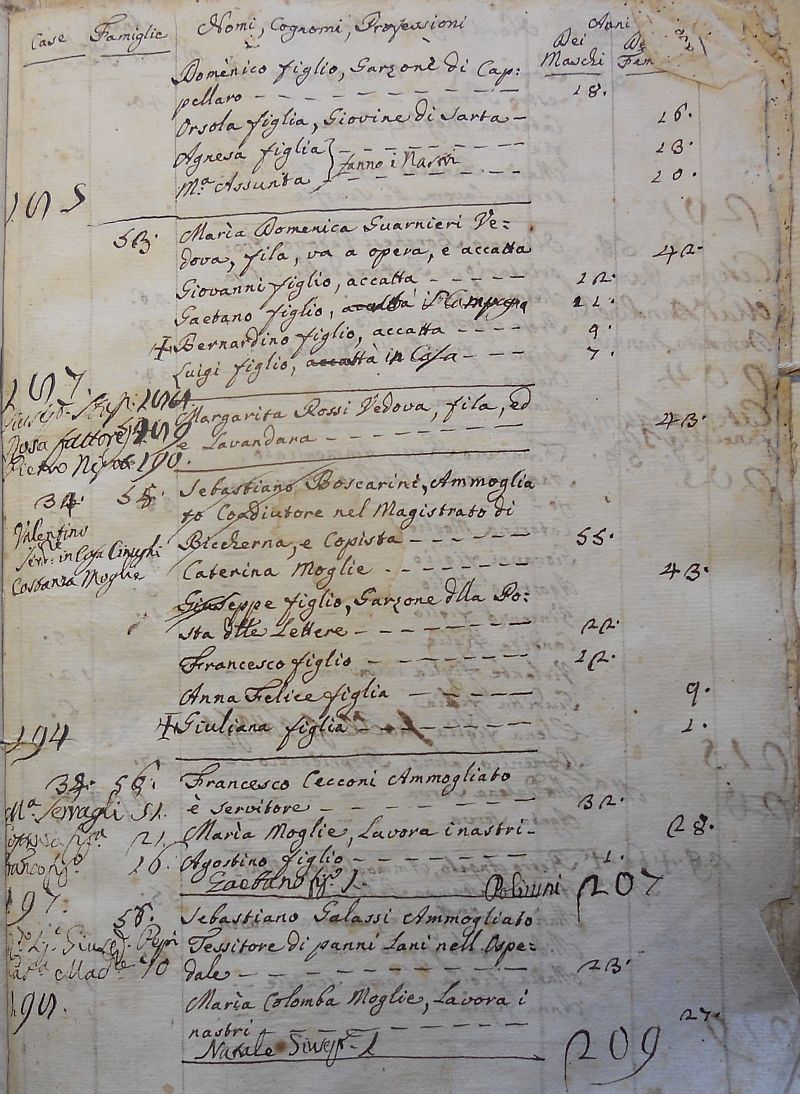 Case Famiglie Nomi, Cognomi, Professioni Anni
Dei Maschi
Domenico figlio, Garzone di Cap:
pellaro 18.
Orsola figlia, Giovine di Sarta 16.
Agnesa figlia 13.
fanno i Nastri
Mª Assunta 10.
53. Maria Domenica Guarnieri Ve:
dova, fila, va a opera, e accatta 42.
Giovanni figlio, accatta 12.
Gaetano figlio, accatta 11.
Bernardino figlio, accatta 9.
Luigi figlio, accatta in Casa 7.
Margarita Rossi Vedova, fila, ed
e Lavandara 43.
Rosa fattore
Pietro 190.
Sebastiano Boscarini, Ammoglia
to Coadiutore nel Magistrato di
Valentino
Biccherna, e Copista 55.
Serv: in Casa
Caterina Moglie 43.
Costanza Moglie
Giuseppe figlio, Garzone dlla Po:
sta dlle Lettere 22.
Francesco figlio 12.
Anna Felice figlia 9.
Giuliana figlia 1.
194
56. Francesco Cecconi Ammogliato
è Servitore 32.
Mª Serragli 51.
Maria Moglie, Lavora i nastri 28.
21.
Agostino figlio 1.
16.
Gaetano figº 1. 207
197.
Sebastiano Galassi Ammogliato
Tessitore di panni Lani nell Ospe:
dale 23.
Maria Colomba Moglie, Lavora i
nastri 27.
Natale 1 209